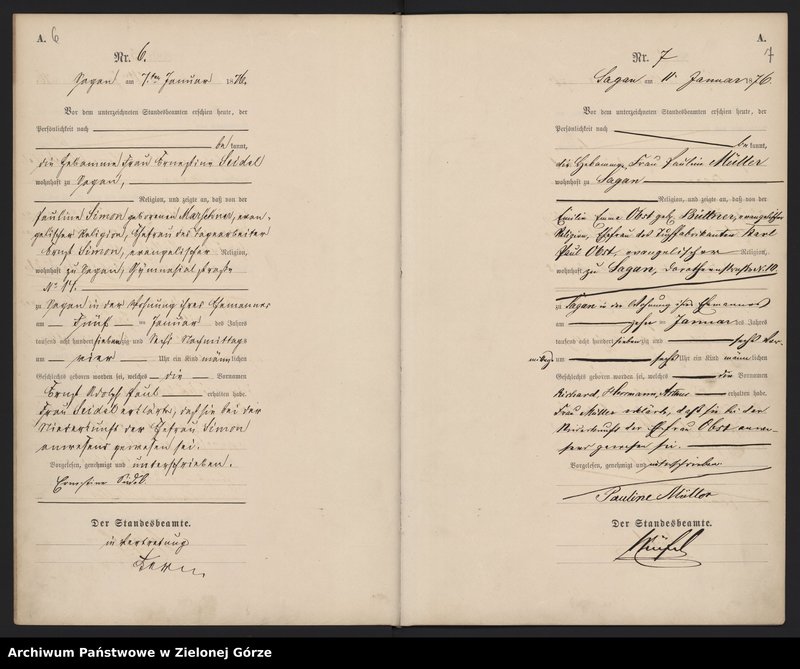 A. 6
Nr. 6.
Sagan am 7.ten Januar 1876.
Vor dem unterzeichneten Standesbeamten erschien heute, der
Persönlichkeit nach
be kannt,
die Hebamme Frau Ernestine Seidel
wohnhaft zu Sagan,
Religion, und zeigte an, daß von der
Pauline Simon geborenen Marschner, evan-
gelischer Religion, Ehefrau des Tagearbeiter
Ernst Simon, evangelischer Religion,
wohnhaft zu Sagan, Gymnasialstraße
No 14.
zu Sagan in der Wohnung ihres Ehemannes
am fünf ten Januar des Jahres
tausend acht hundert siebenzig und sechs Nachmittags
um vier Uhr ein Kind männlichen
Geschlechts geboren worden sei, welches die Vornamen
Ernst Adolf Paul erhalten habe.
Frau Seidel erklärte, daß sie bei der
Niederkunft der Ehefrau Simon
anwesend gewesen sei.
Vorgelesen, genehmigt und unterschrieben.
Ernestine Seidel.
Der Standesbeamte.
in Vertretung
A. 7
Nr. 7
Sagan am 11. Januar 1876.
Vor dem unterzeichneten Standesbeamten erschien heute, der
Persönlichkeit nach
be kannt,
die Hebamme, Frau Pauline Müller
wohnhaft zu Sagan
Religion, und zeigte an, daß von der
Emilie Emma Obst geb. Büttner, evangelischer
Religion, Ehefrau des Tuchfabrikanten Karl
Paul Obst, evangelischer Religion,
wohnhaft zu Sagan, Dorotheenstraße N. 10.
zu Sagan in der Wohnung ihres Ehemannes
am zehn ten Januar des Jahres
tausend acht hundert siebenzig und sechs Vor-
mittags um sechs Uhr ein Kind männlichen
Geschlechts geboren worden sei, welches die Vornamen
Richard, Herrmann, Arthur erhalten habe.
Frau Müller erklärte, daß sie bei der
Niederkunft der Ehefrau Obst anwe-
send gewesen sei.
Vorgelesen, genehmigt und unterschrieben
Pauline Müller
Der Standesbeamte.
Archiwum Państwowe w Zielonej Górze